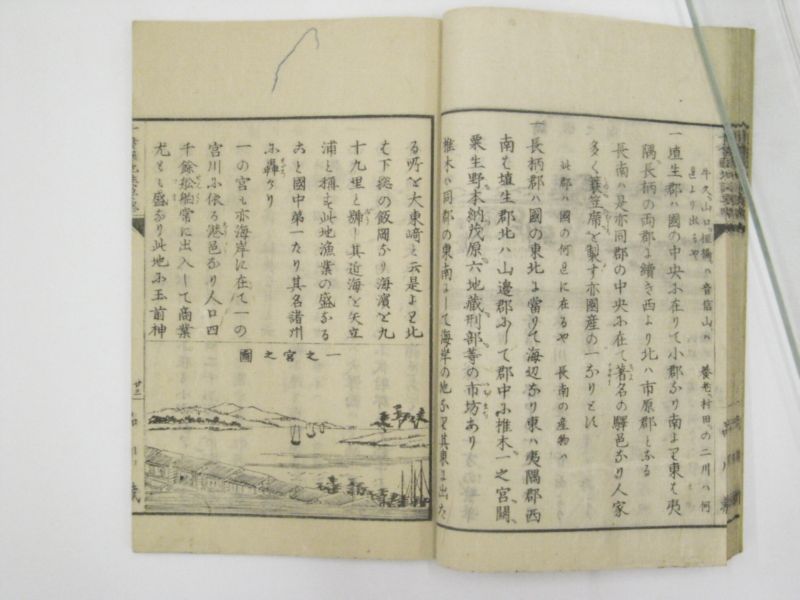 牛久、山口、担橋ハ音信山ハ 養老、村田の二川ハ何
邑より出るや
一埴生郡ハ國の中央ふ在りて小郡なり南より東は夷
隅長柄の両郡よ續き西より北ハ市原郡とふる
長南ハ是亦同郡の中央ふ在て著名の驛邑なり人家
多く蓑笠席を製す亦國産の一なりとに
此郡ハ國の何邑に在るや 長南の産物ハ
一長柄郡ハ國の東北よ當りて海辺なり東ハ夷隅郡西
南も埴生郡北ハ山邊郡ふして郡中ふ椎木一之宮關
粟生野本納茂原六地蔵刑部等の市坊あり
椎木ハ同郡の東南よして海岸の地ふり其東よ出た
る所を大東﨑と云是より北
も下總の飯岡なり海濱を九
十九里と號し其近海を矢立
浦と稱も此地漁業の盛なる
こと國中第一たり其名諸州
ふ轟けり
一の宮も亦海岸に在て一の
宮川ふ依る港邑なり人口四
千餘松船常に出入して商業
尤とも盛なり此地ふ玉前神
一之宮之圖
廿三